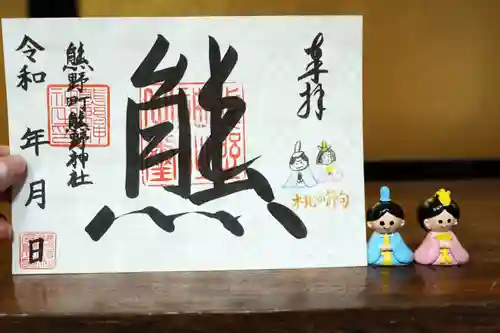 奉拝
熊
桃の節句
熊野町熊野神社
令和 年 月 日